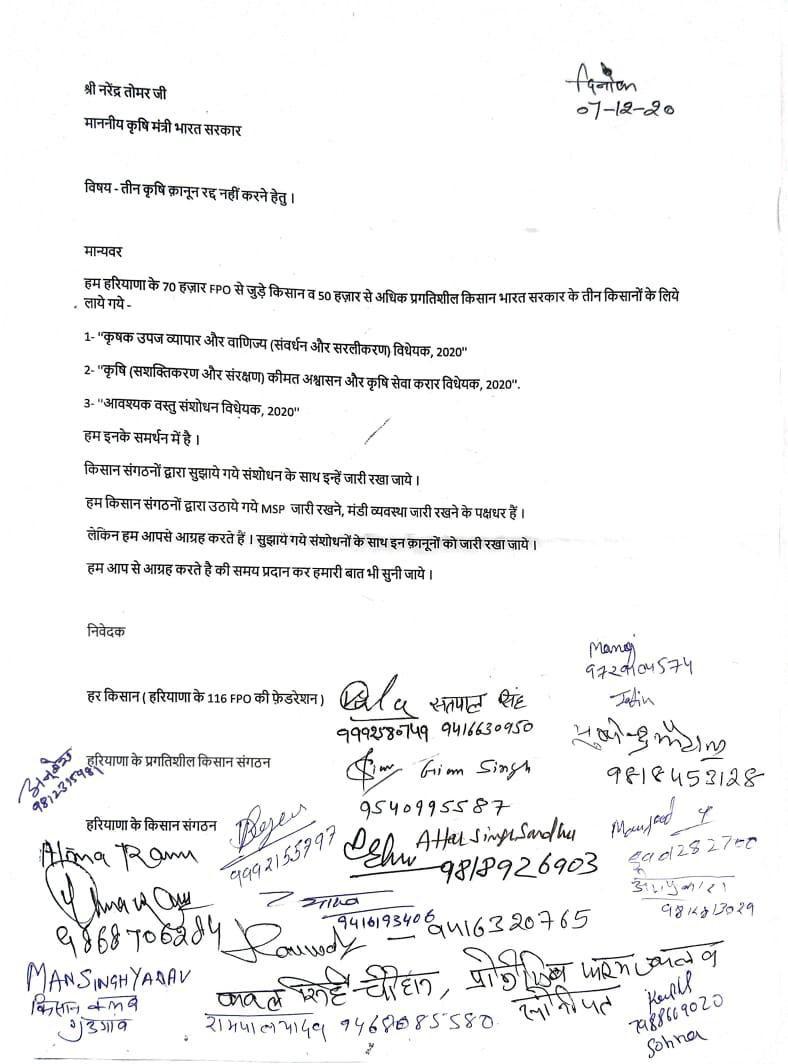 श्री नरेंद्र तोमर जी
दिनांक
07-12-20
माननीय कृषि मंत्री भारत सरकार
विषय - तीन कृषि क़ानून रद्द नहीं करने हेतु ।
मान्यवर
हम हरियाणा के 70 हज़ार FPO से जुड़े किसान व 50 हज़ार से अधिक प्रगतिशील किसान भारत सरकार के तीन किसानों के लिये
लाये गये -
1- "कृषक उपज व्यापार और वाणिज्य (संवर्धन और सरलीकरण) विधेयक, 2020"
2- "कृषि (सशक्तिकरण और संरक्षण) कीमत अश्वासन और कृषि सेवा करार विधेयक, 2020".
3- "आवश्यक वस्तु संशोधन विधेयक, 2020"
हम इनके समर्थन में है ।
किसान संगठनों द्वारा सुझाये गये संशोधन के साथ इन्हें जारी रखा जाये ।
हम किसान संगठनों द्वारा उठाये गये MSP जारी रखने, मंडी व्यवस्था जारी रखने के पक्षधर हैं ।
लेकिन हम आपसे आग्रह करते हैं । सुझाये गये संशोधनों के साथ इन क़ानूनों को जारी रखा जाये ।
हम आप से आग्रह करते है की समय प्रदान कर हमारी बात भी सुनी जाये ।
निवेदक
Manoj
हर किसान ( हरियाणा के 116 FPO की फ़ेडरेशन )
सतपाल सिंह
9416630950
9818453128
हरियाणा के प्रगतिशील किसान संगठन
Singh
9540995587
हरियाणा के किसान संगठन
Attar Singh Sandhu
9818926903
9416193406
9416320765
9868706284
MAN SINGH YADAV
किसान क्लब
गुडगांव
रामपाल यादव 9468085580
7988669020
Sohna